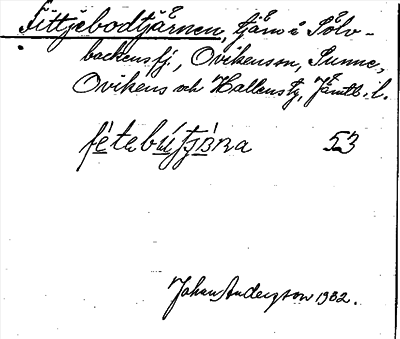 Fittjebodtjärnen, tjärn i Sölv-
backens fj., Ovikensn, Sunne,
Ovikens och Hallens tg, Jämtl. l.
fètebútjäRna 53
Johan Anderzson 1932.